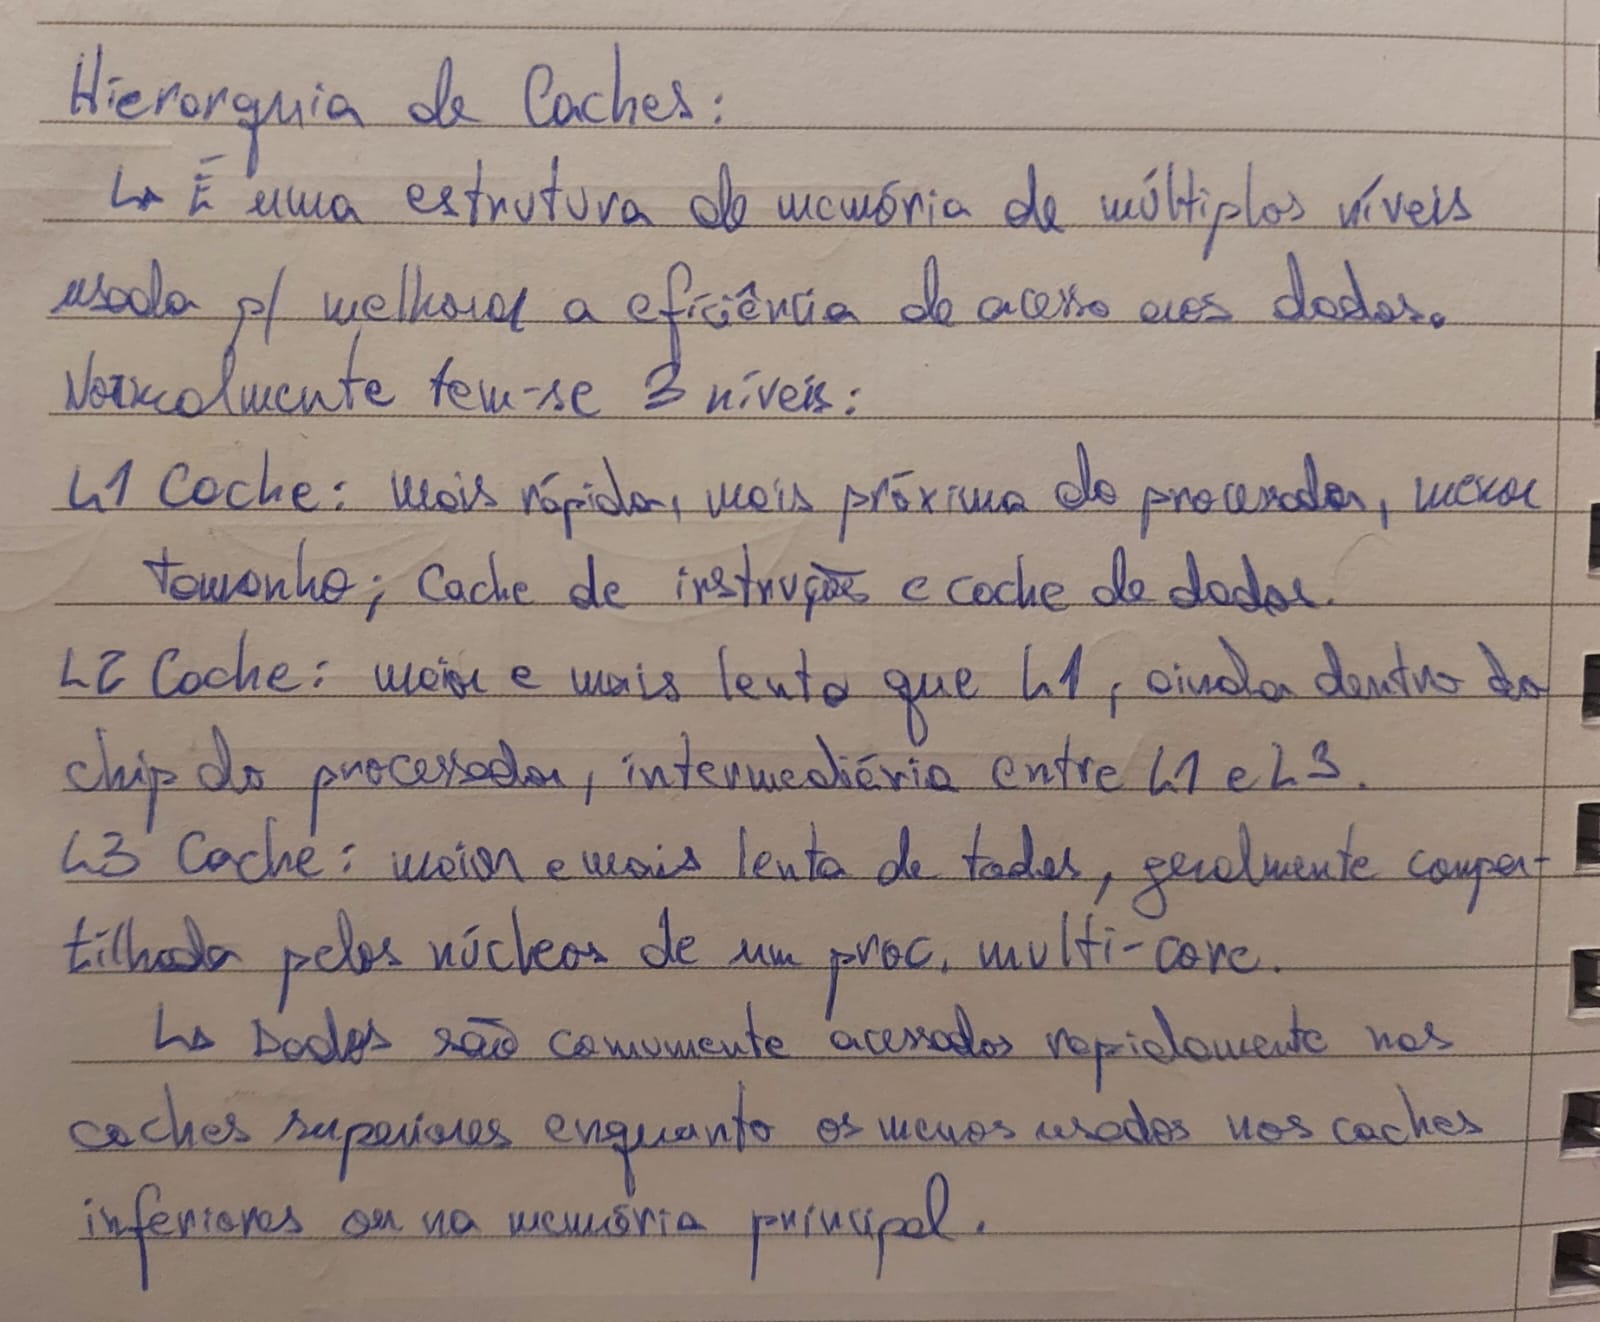 Hierarquia de Caches:
↳ É uma estrutura de memória de múltiplos níveis
usada p/ melhorar a eficiência de acesso aos dados.
Normalmente tem-se 3 níveis:
L1 Cache: mais rápida, mais próxima do processador, menor
tamanho; Cache de instruções e cache de dados.
L2 Cache: maior e mais lenta que L1, ainda dentro do
chip do processador, intermediária entre L1 e L3.
L3 Cache: maior e mais lenta de todas, geralmente compar-
tilhada pelos núcleos de um proc. multi-core.
↳ Dados são comumente acessados rapidamente nos
caches superiores enquanto os menos usados nos caches
inferiores ou na memória principal.